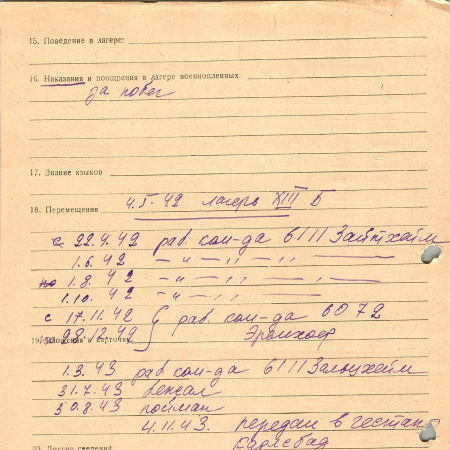 15. Поведение в лагере:
16. Наказания и поощрения в лагере военнопленных
за побег
17. Знание языков
18. Перемещения 4.5-42 лагерь XIII Б
с 22.4.42 раб. ком-да 6111 Зайтхейм
1.6.42 — „ — „ — „ —
по 1.8.42 — „ — „ — „ —
1.10.42 — „ — „ — „ —
с 17.11.42 раб. ком-да 6072
28.12.42
19. Вложения в карточку
1.3.43 раб ком-да 6111 Зальцхейм
31.7.43 бежал
30.8.43 пойман
4.11.43. передан в гестапо
Карлсбад
20. Другие сведения